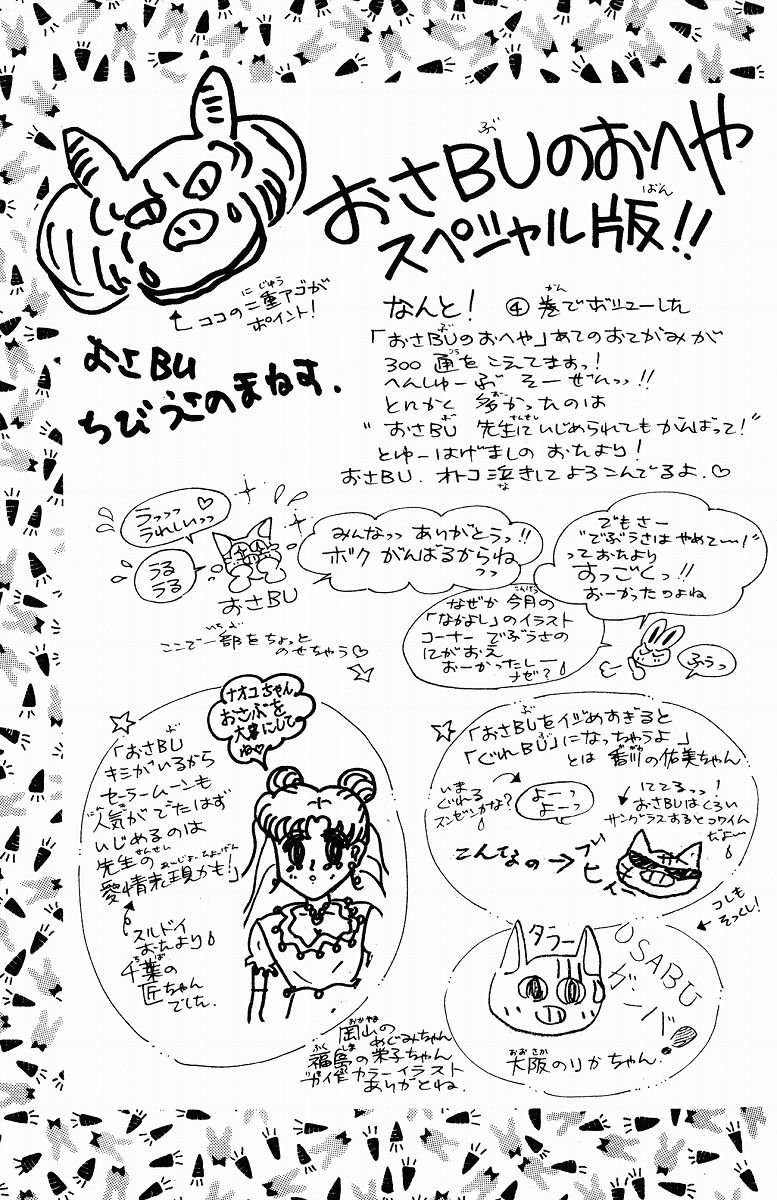 おさBUのおへや
スペシャル版!!
ココの二重アゴが
ポイント!
おさBU
ちびうさのまねす.
なんと! ④巻でデビューした
「おさBUのおへや」あてのおてがみが
300通をこえてますっ!
へんしゅーぶ そーぜんっっ!!
とにかく 多かったのは
"おさBU 先生にいじめられてもがんばって!"
とゆーはげましの おたより!
おさBU. オトコ泣きしてよろこんでるよ.♡
うっっっ♡
うれしいっっ
うる
うる
おさBU
みんなっっ ありがとうっ!!
ボク がんばるからね
っっ
でもさー
"でぶうさは やめてー!"
っておたより
すっごくっ!!
おーかったのよね
なぜか 今月の
「なかよし」のイラスト
コーナー でぶうさの
にがおえ
おーかったしー
ナゼ?
ふうっ
ここで一部をちょっと
のせちゃう♡
ナオコちゃん
おさぶを
大事にして
ね♡
「おさBU
キミがいるから
セーラームーンも
人気がでたはず
いじめるのは
先生の
愛情表現かも!」
スルドイ
おたより
千葉の
匠ちゃん
でした.
「おさBUをイジめすぎると
「ぐれBU」になっちゃうよ」
とは 香川の佑美ちゃん
いま
ぐれる
スンゼンかな?
よーっ
よーっ
にてるっっ!
おさBUはくろい
サングラスするとコワイん
だよー
こんなの→
ブヒィー
コレも
そっくし!
タラー
OSABU
ガンバ!
大阪のりかちゃん
岡山の めぐみちゃん
福島の栄子ちゃん
力作カラーイラスト
ありがとね.